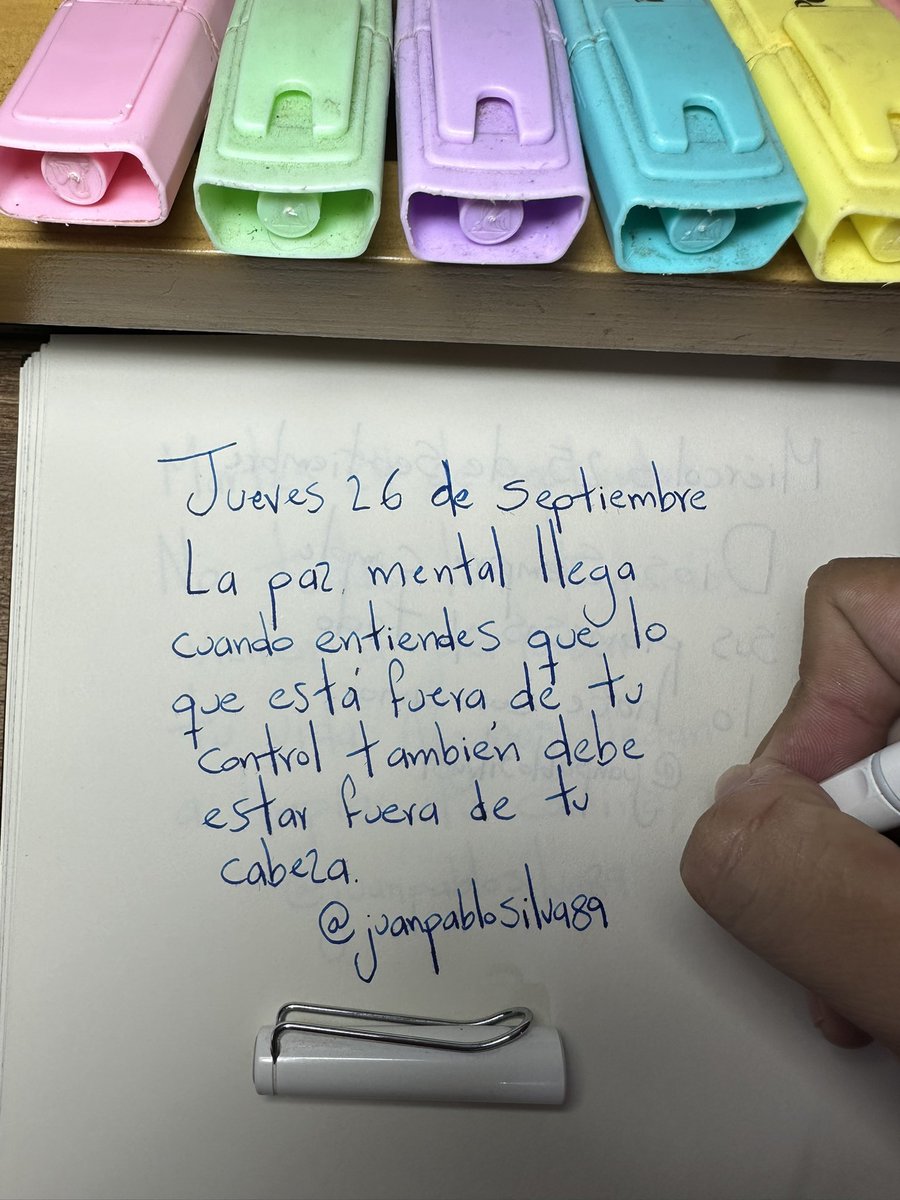 Jueves 26 de Septiembre
La paz mental llega
cuando entiendes que lo
que está fuera de tu
control también debe
estar fuera de tu
cabeza.
@juanpablosilva89